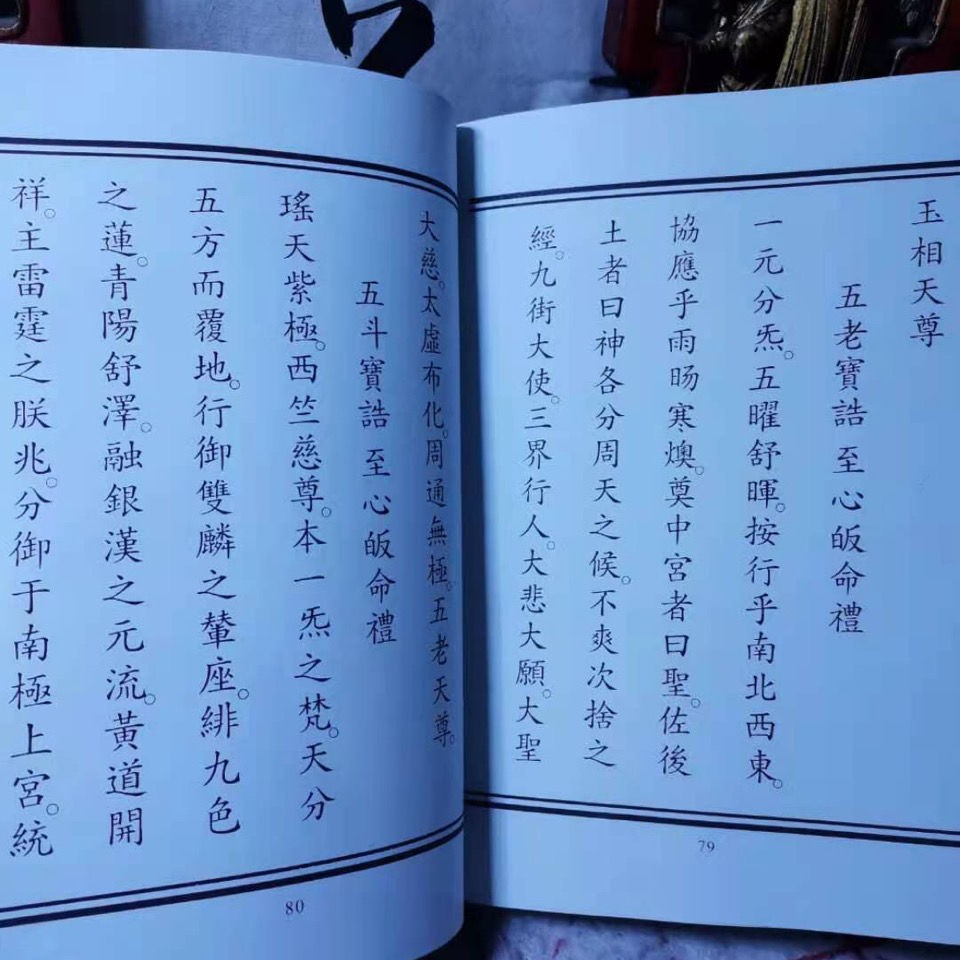 玉相天尊
五老寶誥至心皈命禮
一元分炁。五曜舒暉。按行乎南北西東。
協應乎雨暘寒燠。奠中宮者曰聖。佐後
土者曰神各分周天之候。不爽次捨之
經。九街大使。三界行人。大悲大願。大聖
79
大慈。太虛布化。周通無極。五老天尊。
五斗寶誥至心皈命禮
瑤天紫極。西竺慈尊。本一炁之梵。天分
五方而覆地。行御雙麟之輦座。緋九色
之蓮。青陽舒澤。融銀漢之元流。黃道開
祥。主雷霆之朕兆。分御于南極上宮。統
80